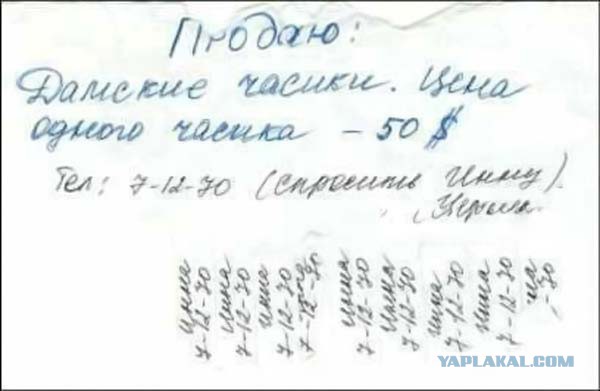 Продаю:
Дамские часики. Цена
одного часика – 50 $
Тел: 7-12-70 (спросить Инну).
Инна
7-12-70
Инна
7-12-70
Инна
7-12-70
7-12-70
Инна
7-12-70
Инна
7-12-70
Инна
7-12-70
Инна
7-12-70
на
-70
YAPLAKAL.COM